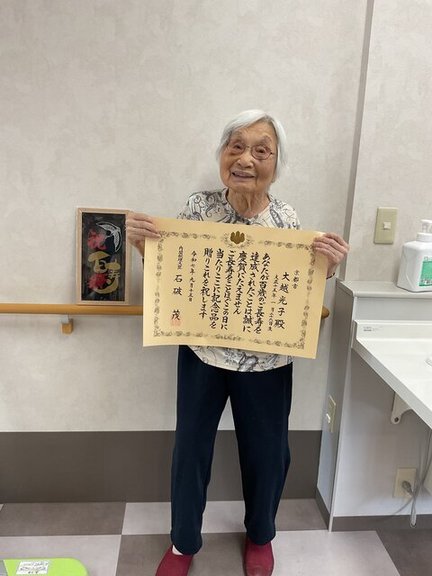 京都市
大越光子殿
大正十五年一月
あなたが百歳のご長寿を
達成されたことは誠に
慶賀にたえません
ご長寿をことほぎこの日に
当たりここに記念品を
贈りこれを祝します
令和七年九月十五日
内閣総理大臣 石破 茂
祝
百寿